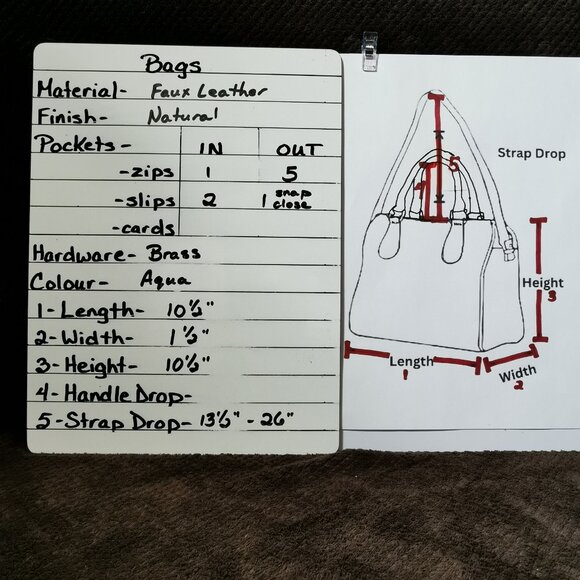 Bags
Material- Faux Leather
Finish- Natural
Pockets- IN OUT
-zips 1 5
-slips 2 1 snap close
-cards
Hardware- Brass
Colour- Aqua
1-Length- 10½"
2-Width- 1½"
3-Height- 10½"
4-Handle Drop-
5-Strap Drop- 13½" - 26"
Strap Drop
5
4
Height
3
Length
1
Width
2